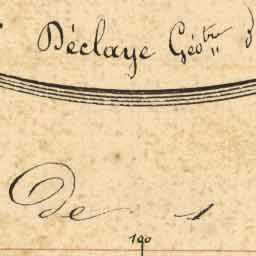 Déclaye Géotre
De 1
100